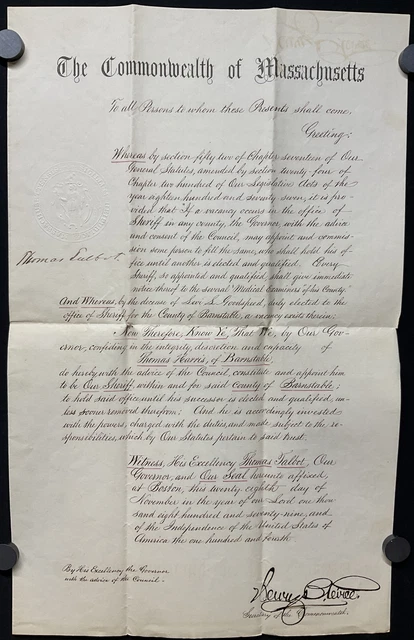 The Commonwealth of Massachusetts
To all Persons to whom these Presents shall come,
Greeting:
Whereas by section fifty two of Chapter seventeen of Our
General Statutes, amended by section twenty-four of
Chapter two hundred of Our Legislative Acts of the
year eighteen hundred and seventy seven, it is pro-
vided that "If a vacancy occurs in the office of
Sheriff in any county, the Governor, with the advice
and consent of the Council, may appoint and commis-
sion some person to fill the same, who shall hold his of-
fice until another is elected and qualified. Every
Sheriff, so appointed and qualified, shall give immediate
notice thereof to the several Medical Examiners of his County"
Thomas Talbot
And Whereas, by the decease of Levi L. Goodspeed, duly elected to the
office of Sheriff for the County of Barnstable, a vacancy exists therein;
Now Therefore, Know Ye, That We, by Our Gov-
ernor, confiding in the integrity, discretion and capacity of
Thomas Harris, of Barnstable,
do hereby with the advice of the Council, constitute and appoint him
to be Our Sheriff within and for said County of Barnstable;
to hold said office until his successor is elected and qualified, un-
less sooner removed therefrom; And he is accordingly invested
with the powers, charged with the duties, and made subject to the re-
sponsibilities, which by Our Statutes pertain to said trust.
Witness, His Excellency Thomas Talbot, Our
Governor, and Our Seal hereunto affixed,
at Boston, this twenty eighth day of
November in the year of our Lord one thou
sand eight hundred and seventy-nine, and
of the Independence of the United States of
America the one hundred and fourth.
By His Excellency the Governor
with the advice of the Council.
Henry B. Peirce
Secretary of the Commonwealth.